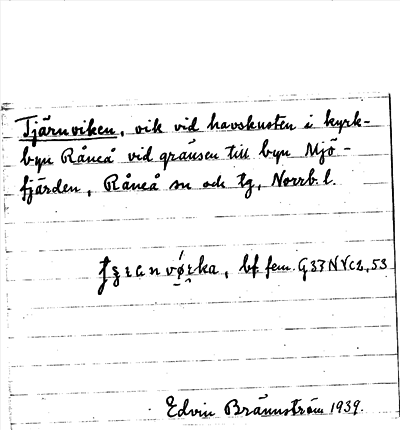 Tjärnviken, vik vid havskusten i kyrk-
byn Råneå vid gränsen till byn Mjö-
fjärden, Råneå sn och tg, Norrb. l.
bf fem. G 33 N V c 2, 53
Edvin Brännström 1939.